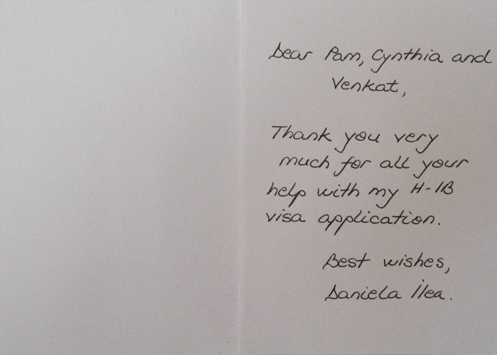 Dear Pam, Cynthia and
Venkat,
Thank you very
much for all your
help with my H-1B
visa application.
Best wishes,
Daniela Ilea.